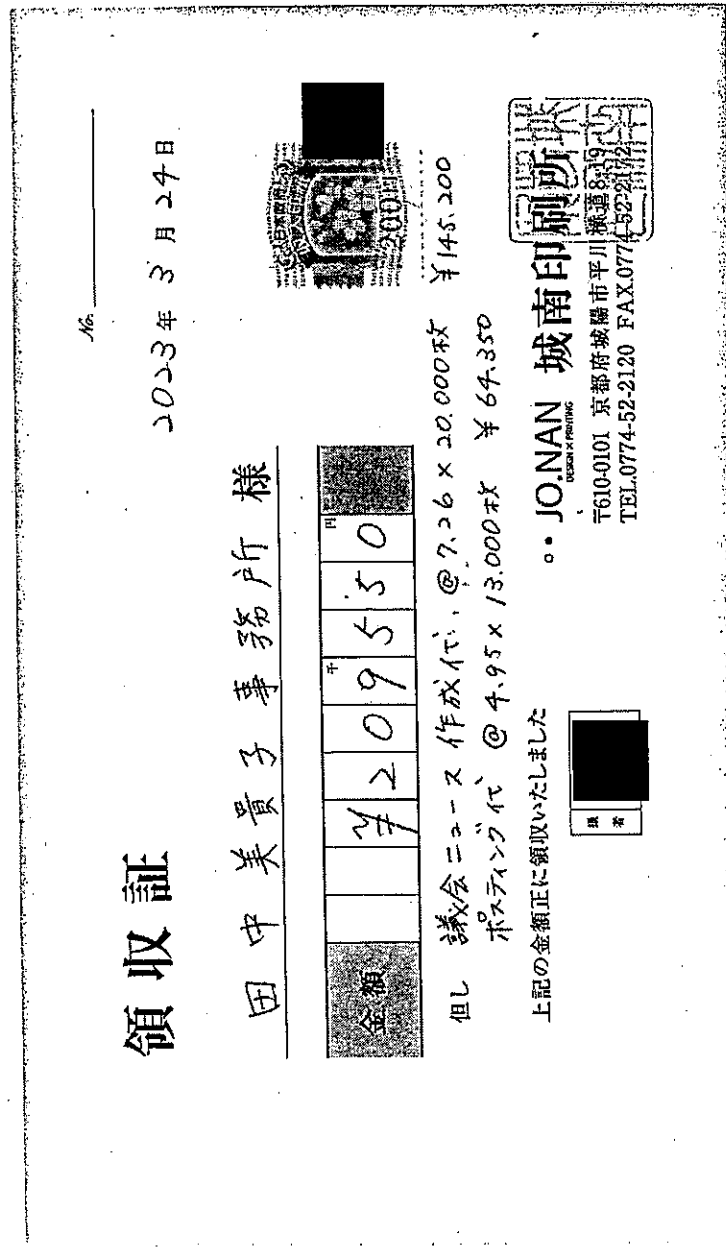 No.
領収証
2023年3月24日
田中美貴子事務所 様
金額 ¥209550
千 円
200円
但し 議会ニュース作成代、@7.26×20.000枚 ¥145.200
ポスティング代 @4.95×13.000枚 ¥64.350
上記の金額正に領収いたしました
JO.NAN 城南印刷所
DESIGN×PRINTING
〒610-0101 京都府城陽市平川横道8-19
TEL.0774-52-2120 FAX.0774-52-2172
扱者